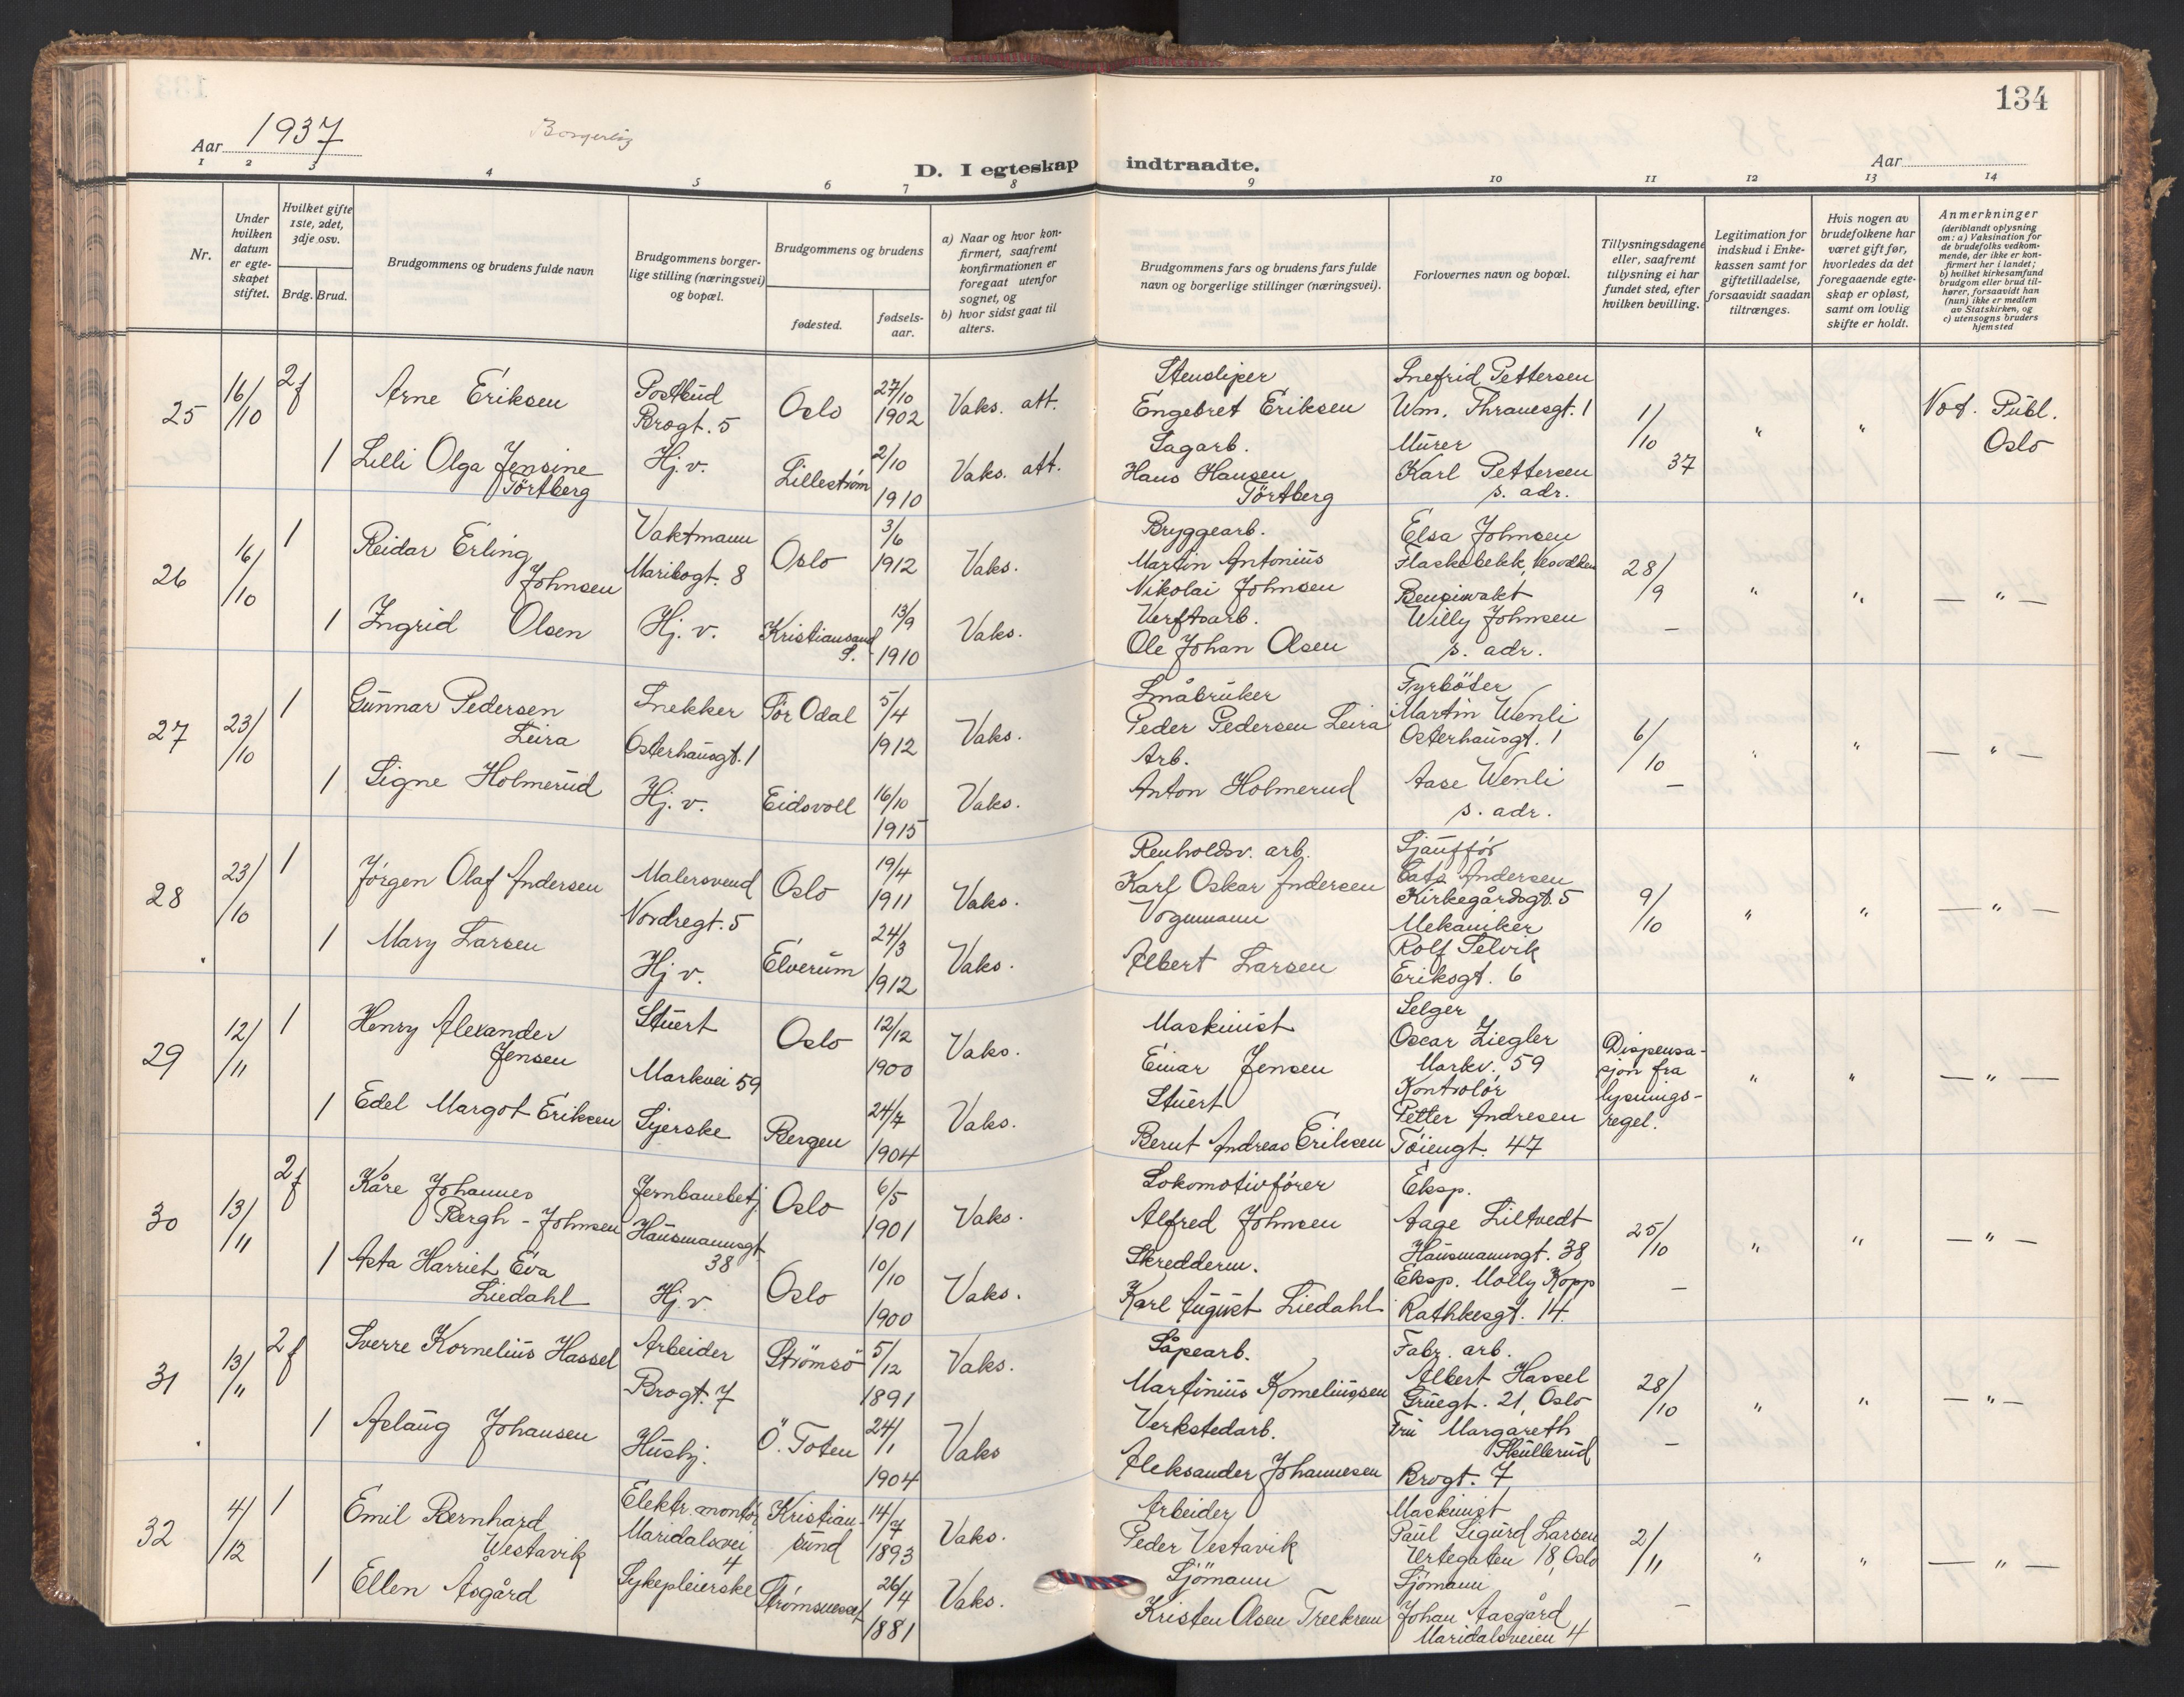 134
Aar 1937
Borgerlig
D. I egteskap indtraadte.
Aar
1 2 3 4 5 6 7 8 9 10 11 12 13 14
Nr.
Under hvilken datum er egteskapet stiftet.
Hvilket gifte 1ste, 2det, 3dje osv.
Brdg. Brud.
Brudgommens og brudens fulde navn
Brudgommens borgerlige stilling (næringsvei) og bopæl.
Brudgommens og brudens
fødested.
fødselsaar.
a) Naar og hvor konfirmert, saafremt konfirmationen er foregaat utenfor sognet, og
b) hvor sidst gaat til alters.
Brudgommens fars og brudens fars fulde navn og borgerlige stillinger (næringsvei).
Forlovernes navn og bopæl.
Tillysningsdagene eller, saafremt tillysning ei har fundet sted, efter hvilken bevilling.
Legitimation for indskud i Enkekassen samt for giftetilladelse, forsaavidt saadan tiltrænges.
Hvis nogen av brudefolkene har været gift før, hvorledes da det foregaaende egteskap er opløst, samt om lovlig skifte er holdt.
Anmerkninger
(deriblandt oplysning om: a) Vaksination for de brudefolks vedkommende, der ikke er konfirmert her i landet; b) hvilket kirkesamfund brudgom eller brud tilhører, forsaavidt han (hun) ikke er medlem av Statskirken, og c) utensogns bruders hjemsted
25
16/10
2f
Arne Eriksen
Postbud
Brogt. 5
Oslo
27/10 1902
Vaks. att.
Stensliper
Engebret Eriksen
Snefrid Pettersen
Wm. Thranesgt. 1
1/10 37
" "
Not. Publ.
Oslo
1
Lilli Olga Jensine
Törtberg
Hj. v.
Lillestrøm
2/10 1910
Vaks. att.
Sagarb.
Hans Hansen
Törtberg
Murer
Karl Pettersen
s. adr.
26
16/10
1
Reidar Erling
Johnsen
Vaktmann
Maribogt. 8
Oslo
3/6 1912
Vaks.
Bryggearb.
Martin Antonius
Nikolai Johnsen
Elsa Johnsen
Flaskebekk, Nesodden
28/9 –
" "
— " —
1
Ingrid Olsen
Hj. v.
Kristiansand
S.
13/9 1910
Vaks.
Verftsarb.
Ole Johan Olsen
Bensinvakt
Willy Johnsen
s. adr.
27
23/10
1
Gunnar Pedersen
Leira
Snekker
Osterhausgt. 1
Sör Odal
5/4 1912
Vaks.
Småbruker
Peder Pedersen Leira
Fyrböter
Martin Wenli
Osterhausgt. 1
6/10 –
" "
— " —
1
Signe Holmerud
Hj. v.
Eidsvoll
16/10 1915
Vaks.
Arb.
Anton Holmerud
Aase Wenli
s. adr.
28
23/10
1
Jörgen Olaf Andersen
Malersvend
Nordregt. 5
Oslo
19/4 1911
Vaks.
Renholdsv. arb.
Karl Oskar Andersen
Sjåufför
Andersen
Kirkegårdsgt. 5
9/10
" "
— " —
1
Mary Larsen
Hj. v.
Elverum
24/3 1912
Vaks.
Vognmann
Albert Larsen
Mekaniker
Rolf Selvik
Eriksgt. 6
29
12/11
1
Henry Alexander
Jensen
Stuert
Markvei 59
Oslo
12/12 1900
Vaks.
Maskinist
Einar Jensen
Selger
Oscar Ziegler
Markv. 59
Dispensa-
sjon fra
lysnings-
regel.
" "
— " —
1
Edel Margot Eriksen
Syerske
Bergen
24/7 1904
Vaks.
Stuert
Bernt Andreas Eriksen
Kontrolör
Petter Andresen
Töiengt. 47
30
13/11
2f
Kåre Johannes
Bergh - Johnsen
Jernbanebetj.
Hausmannsgt.
38
Oslo
6/5 1901
Vaks.
Lokomotivförer
Alfred Johnsen
Eksp.
Aage Liltvedt
Hausmannsgt. 38
25/10 –
" "
— " —
1
Asta Harriet Eva
Liedahl
Hj. v.
Oslo
10/10 1900
Vaks.
Skredderm.
Karl August Liedahl
Eksp. Molly Kopp
Rathkesgt. 14.
31
13/11
2f
Sverre Kornelius Hassel
Arbeider
Brogt. 7
Strömsö
5/12 1891
Vaks.
Såpearb.
Martinius Korneliussen
Fabr. arb.
Albert Hassel
Gruegt. 21, Oslo
28/10 –
" "
— " —
1
Aslaug Johansen
Husbj.
Ö. Toten
24/1 1904
Vaks
Verkstedarb.
Aleksander Johannesen
Fru Margareth
Skullerud
Brogt. 7
32
4/12
1
Emil Bernhard
Westavik
Elektr. montör
Maridalsvei
4
Kristian-
sund
14/7 1893
Vaks.
Arbeider
Peder Vestavik
Maskinist
Paul Sigurd Larsen
Urtegaten 18, Oslo
2/11 –
" "
— " —
1
Ellen Asgård
Sykepleierske
26/4 1881
Vaks.
Sjömann
Kristen Olsen Treekrem
Sjömann
Johan Aasgård
Maridalsveien 4